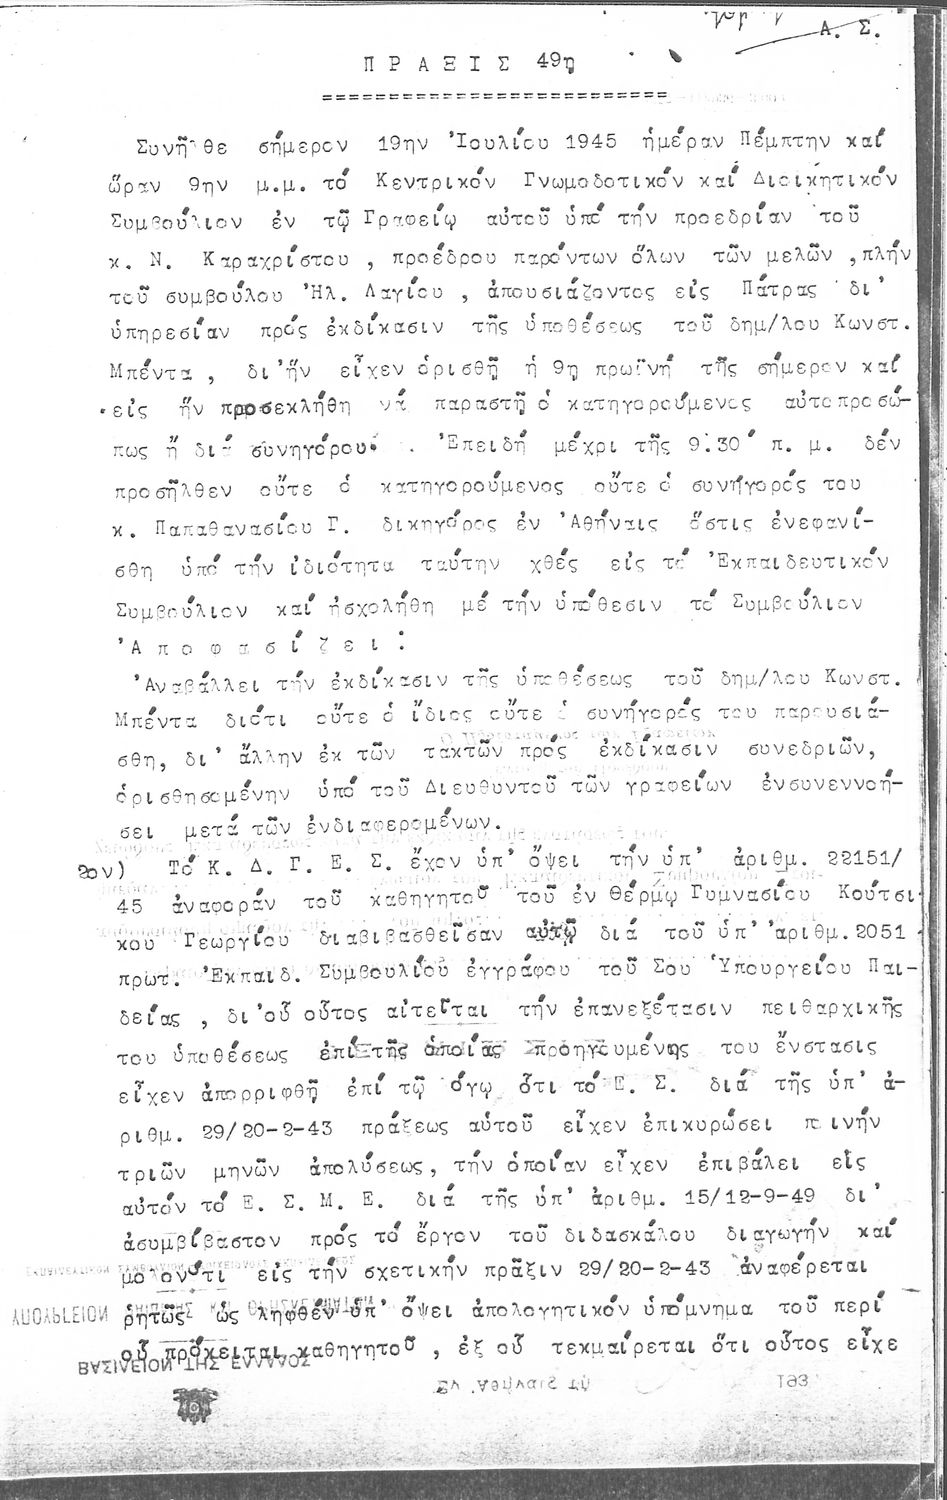 Α. Σ.
Π Ρ Α Ξ Ι Σ 49η
==========================
Συνῆλθε σήμερον 19ην Ἰουλίου 1945 ἡμέραν Πέμπτην καί
ὥραν 9ην μ.μ. τό Κεντρικόν Γνωμοδοτικόν καί Διοικητικόν
Συμβούλιον ἐν τῷ Γραφείῳ αὐτοῦ ὑπό τήν προεδρίαν τοῦ
κ. Ν. Καραχρίστου , προέδρου παρόντων ὅλων τῶν μελῶν ,πλήν
τοῦ συμβούλου Ἠλ. Λαγίου , ἀπουσιάζοντος εἰς Πάτρας δι'
ὑπηρεσίαν πρός ἐκδίκασιν τῆς ὑποθέσεως τοῦ δημ/λου Κωνστ.
Μπέντα , δι'ἥν εἶχεν ὁρισθῇ ἡ 9η πρωϊνή τῆς σήμερον καί
εἰς ἥν προσεκλήθη νά παραστῇ ὁ κατηγορούμενος αὐτοπροσώ-
πως ἤ διά συνηγόρου. Ἐπειδή μέχρι τῆς 9.30' π. μ. δέν
προσῆλθεν οὔτε ὁ κατηγορούμενος οὔτε ὁ συνήγορός του
κ. Παπαθανασίου Γ. δικηγόρος ἐν Ἀθήναις ὅστις ἐνεφανί-
σθη ὑπό τήν ἰδιότητα ταύτην χθές εἰς τό Ἐκπαιδευτικόν
Συμβούλιον καί ἠσχολήθη μέ τήν ὑπόθεσιν τό Συμβούλιον
Ἀ π ο φ α σ ί ζ ε ι :
Ἀναβάλλει τήν ἐκδίκασιν τῆς ὑποθέσεως τοῦ δημ/λου Κωνστ.
Μπέντα διότι οὔτε ὁ ἴδιος οὔτε ὁ συνήγορός του παρουσιά-
σθη, δι' ἄλλην ἐκ τῶν τακτῶν πρός ἐκδίκασιν συνεδριῶν,
ὁρισθησομένην ὑπό τοῦ Διευθυντοῦ τῶν γραφείων ἐνσυνεννοή-
σει μετά τῶν ἐνδιαφερομένων.
2ον) Τό Κ. Δ. Γ. Ε. Σ. ἔχον ὑπ' ὄψει τήν ὑπ' ἀριθμ. 22151/
45 ἀναφοράν τοῦ καθηγητοῦ τοῦ ἐν Θέρμῳ Γυμνασίου Κούτσι-
κου Γεωργίου διαβιβασθεῖσαν αὐτῷ διά τοῦ ὑπ' ἀριθμ.2051
πρωτ. Ἐκπαιδ. Συμβουλίου ἐγγράφου τοῦ Σου Ὑπουργείου Παι-
δείας , δι'οὗ οὗτος αἰτεῖται τήν ἐπανεξέτασιν πειθαρχικῆς
του ὑποθέσεως ἐπί τῆς ὁποίας προηγουμένης του ἔνστασις
εἶχεν ἀπορριφθῆ ἐπί τῷ όγῳ ὅτι τό Ε. Σ. διά τῆς ὑπ' ἀ-
ριθμ. 29/20-2-43 πράξεως αὐτοῦ εἶχεν ἐπικυρώσει ποινήν
τριῶν μηνῶν ἀπολύσεως, τήν ὁποίαν εἶχεν ἐπιβάλει εἰς
αὐτόν τό Ε. Σ. Μ. Ε. διά τῆς ὑπ' ἀριθμ. 15/12-9-49 δι'
ἀσυμβίβαστον πρός τό ἔργον τοῦ διδασκάλου διαγωγήν καί
μολονότι εἰς τήν σχετικήν πρᾶξιν 29/20-2-43 ἀναφέρεται
ῥητῶς ὡς ληφθέν ὑπ' ὄψει ἀπολογητικόν ὑπόμνημα τοῦ περί
οὗ πρόκειται καθηγητοῦ , ἐξ οὗ τεκμαίρεται ὅτι οὗτος εἶχε
ΒΑΣΙΛΕΙΟΝ ΤΗΣ ΕΛΛΑΔΟΣ